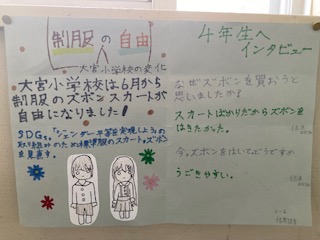 制服の自由
大宮小学校の変化
大宮小学校は6月から
制服のズボンスカートが
自由になりました!
SDGs「ジェンダー平等を実現しよう」の
取り組みのため標準服のスカート、ズボン
を見直す。
4年生へ
インタビュー
なぜズボンを買おうと
思いましたか?
スカートばかりだからズボンを
はきたかた。
今、ズボンをはいてどうですか
うごきやすい。